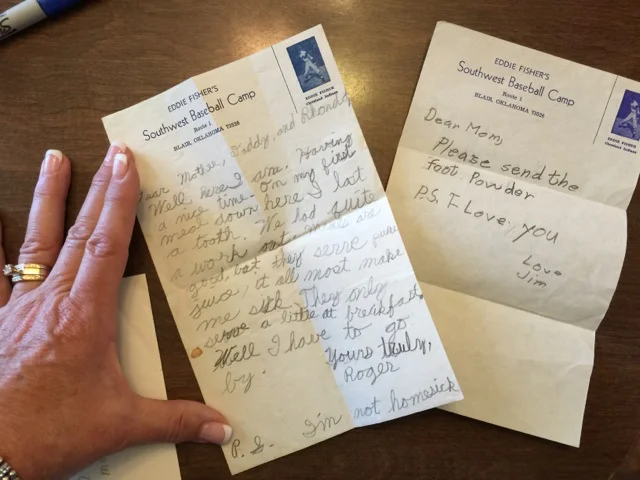 EDDIE FISHER'S
Southwest Baseball Camp
Route 1
BLAIR, OKLAHOMA 73526
EDDIE FISHER
Cleveland Indians
Dear Mother, Daddy, and Rhonda
Well here I am. Having
a nice time. On my first
meal down here I lost
a tooth. We had quite
a work out. Meals are
good, but they serve pure
juice, it all most make
me sick. They only
serve a little at breakfast.
Well I have to go
by.
Yours truly,
Roger
P. S. I'm not homesick
EDDIE FISHER'S
Southwest Baseball Camp
Route 1
BLAIR, OKLAHOMA 73526
EDDIE FISHER
Cleveland Indians
Dear Mom,
Please send the
foot. Powder
P.S. I Love. you
Love
Jim